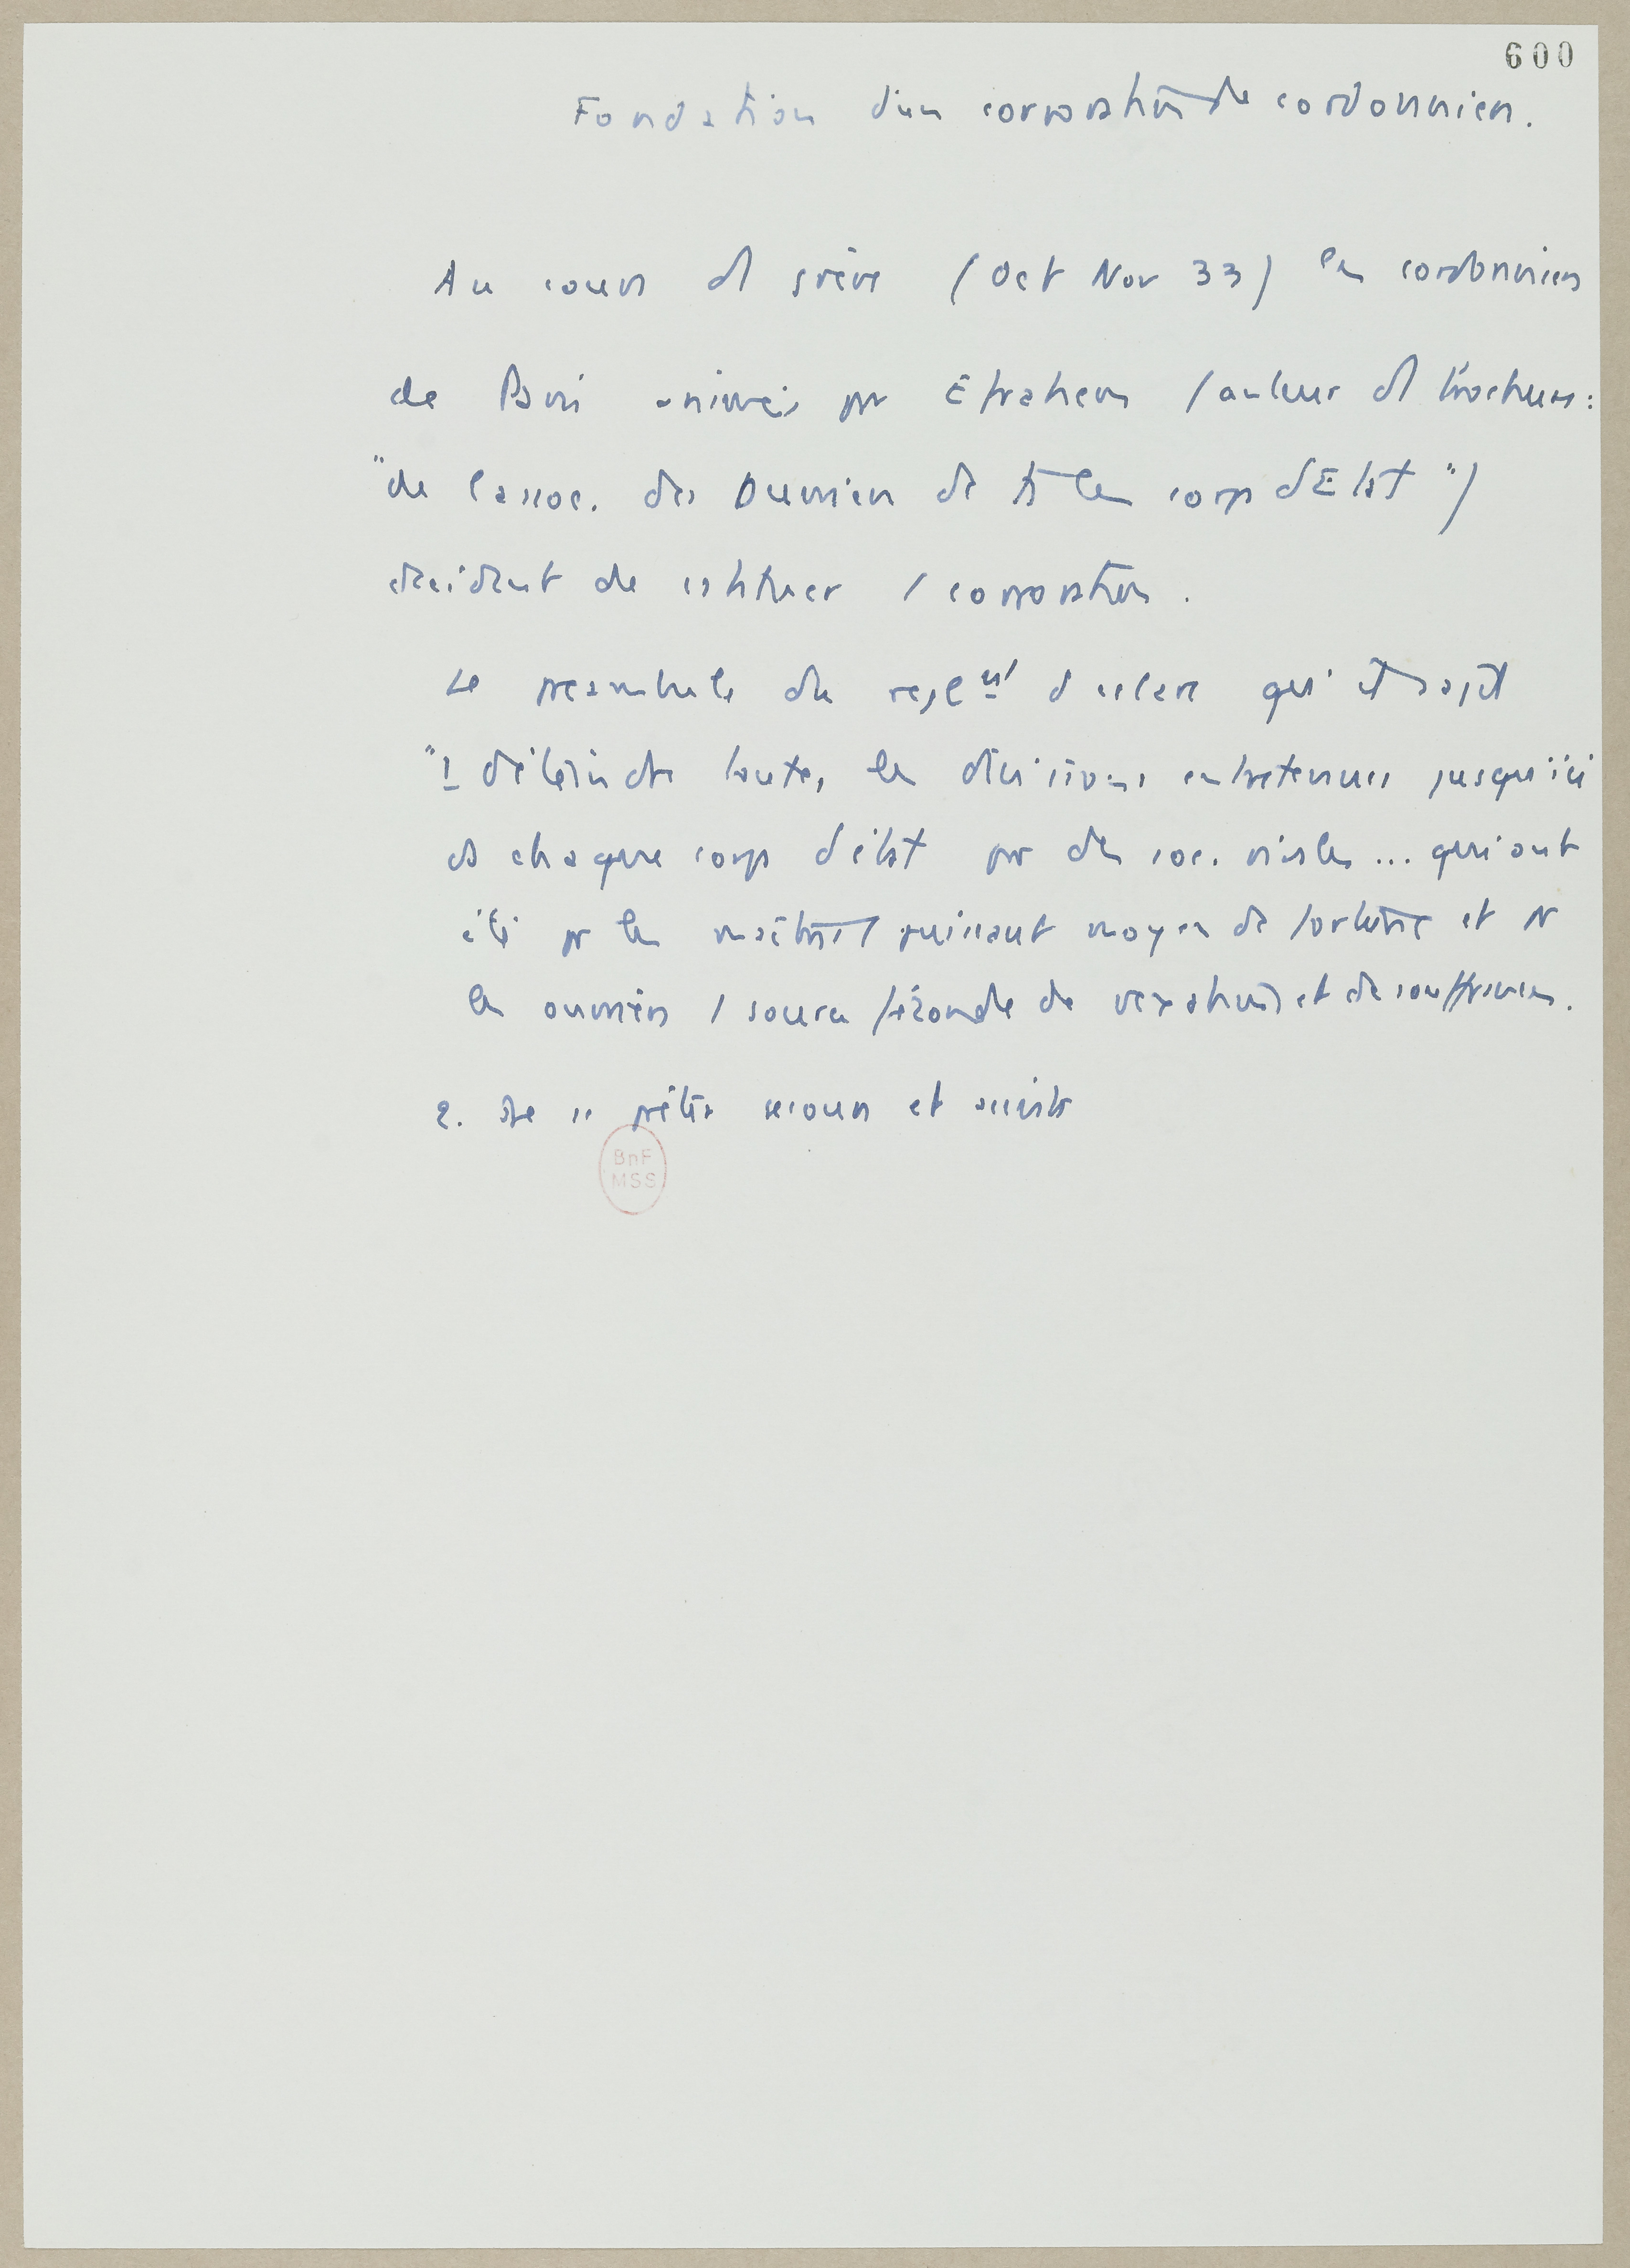 600
Fondation d'un corporation de cordonniers.
Au cours d'1 grève (Oct Nov 33) les cordonniers
de Paris animés par Efrahem (auteur d'1 brochure :
"de l'assoc. des Ouvriers de ts les corps d'Etat")
decident de constituer 1 corporation.
Le preambule du reglemt declare qu'il s'agit
"1 d'éteindre toutes les divisions entretenues jusqu'ici
ds chaque corps d'état par des soc. rivales ... qui ont
été pr les maîtres 1 puissant moyen de fortune et pr
les ouvriers 1 source féconde de vexations et de souffrances.
2. de se prêter secours et assist
BnF
MSS